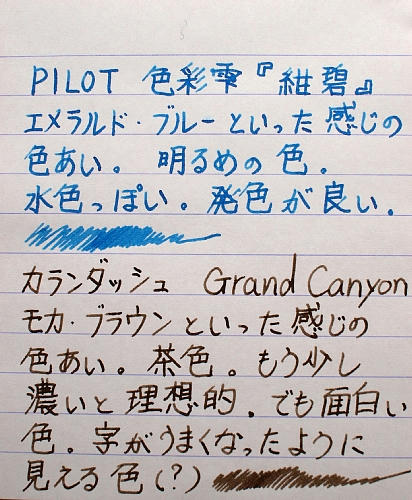 PILOT 色彩雫『紺碧』
エメラルド・ブルーといった感じの
色あい。 明るめの色.
水色っぽい。発色が良い.
カランダッシュ Grand Canyon
モカ・ブラウンといった感じの
色あい。茶色。もう少し
濃いと理想的.でも面白い
色.字がうまくなったように
見える色(?)